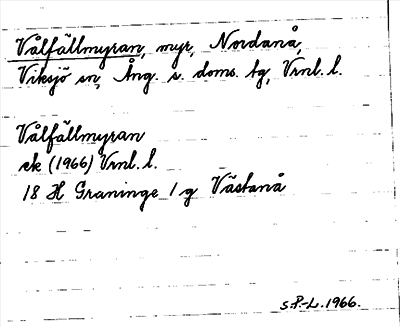 Vålfällmyran, myr, Nordanå,
Viksjö sn, Ång. s. doms. tg, Vrnl. l.
Vålfällmyran
ek (1966) Vrnl. l.
18 H Graninge 1 g Västanå
S.P-L. 1966.